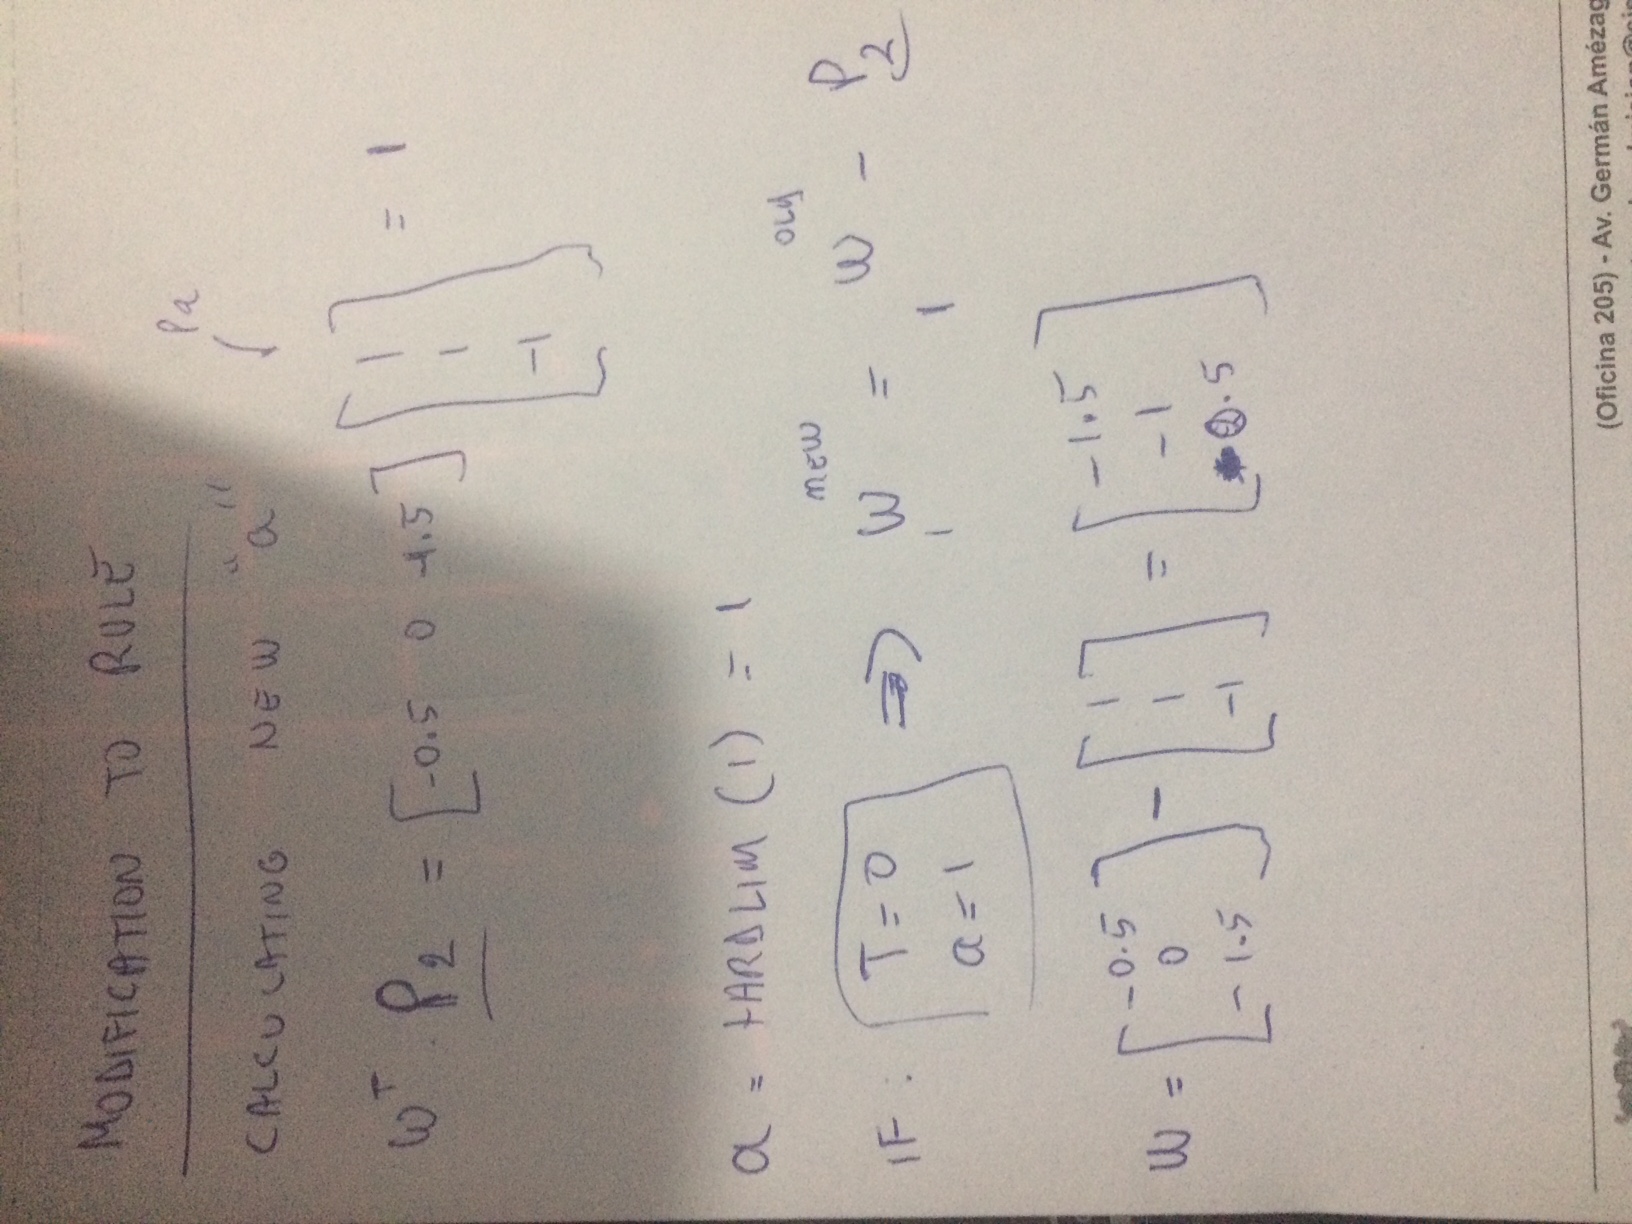 MODIFICATION TO RULE
CALCULATING NEW "a"
Pa
W^T . P2 = [-0.5 0 -1.5] [1 1 -1] = 1
a = HARDLIM (1) = 1
IF : T=0 a=1 => 1W^NEW = 1W^OLD - P2
W = [-0.5 0 -1.5] - [1 1 -1] = [-1.5 -1 .5]
(Oficina 205) - Av. Germán